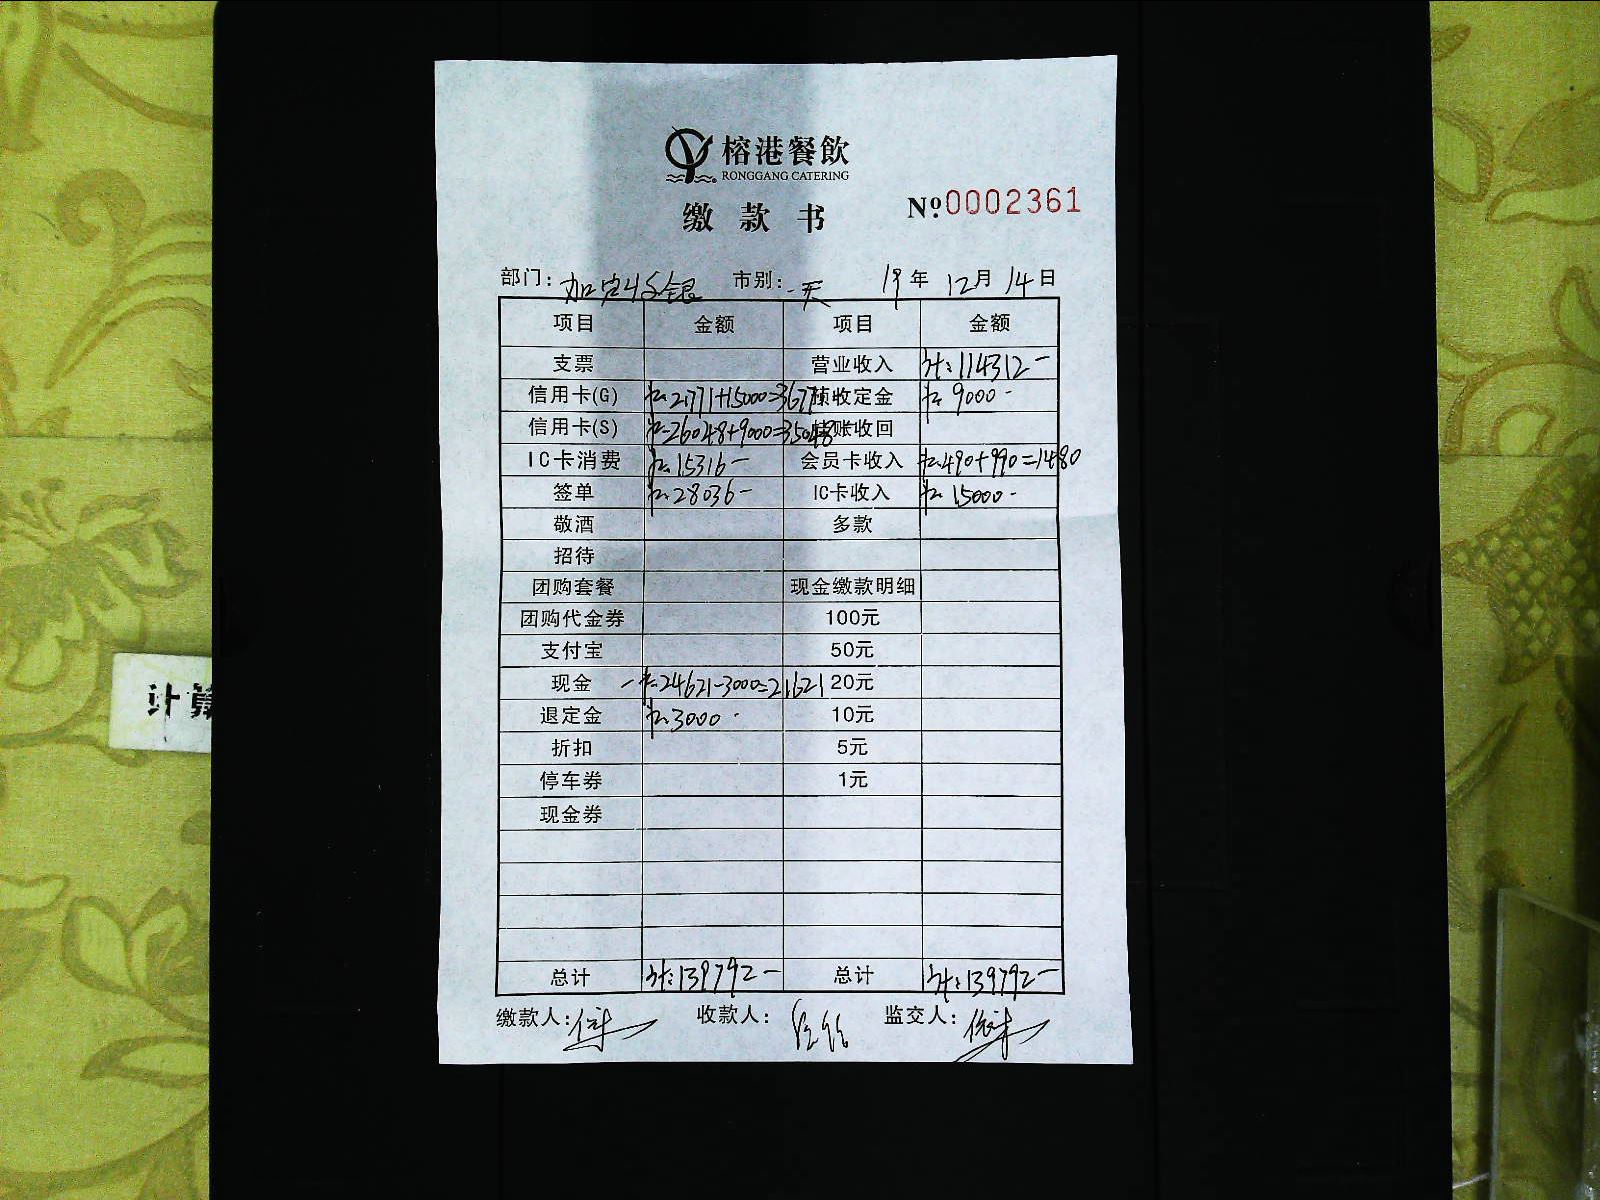 榕港餐飲
RONGGANG CATERING
缴款书
Nº0002361
部门: 收银 市别: 一天 19年 12月 14日
项目 金额 项目 金额
支票 营业收入 计:114312-
信用卡(G) 21771+15000=36771 预收定金 9000-
信用卡(S) 26048+9000=35048 挂账收回
IC卡消费 15316- 会员卡收入 490+990=1480
签单 28036- IC卡收入 15000-
敬酒 多款
招待
团购套餐 现金缴款明细
团购代金券 100元
支付宝 50元
现金 24621-3000=21621 20元
退定金 3000- 10元
折扣 5元
停车券 1元
现金券
总计 计:139792- 总计 计:139792-
缴款人: 收款人: 监交人:
计算